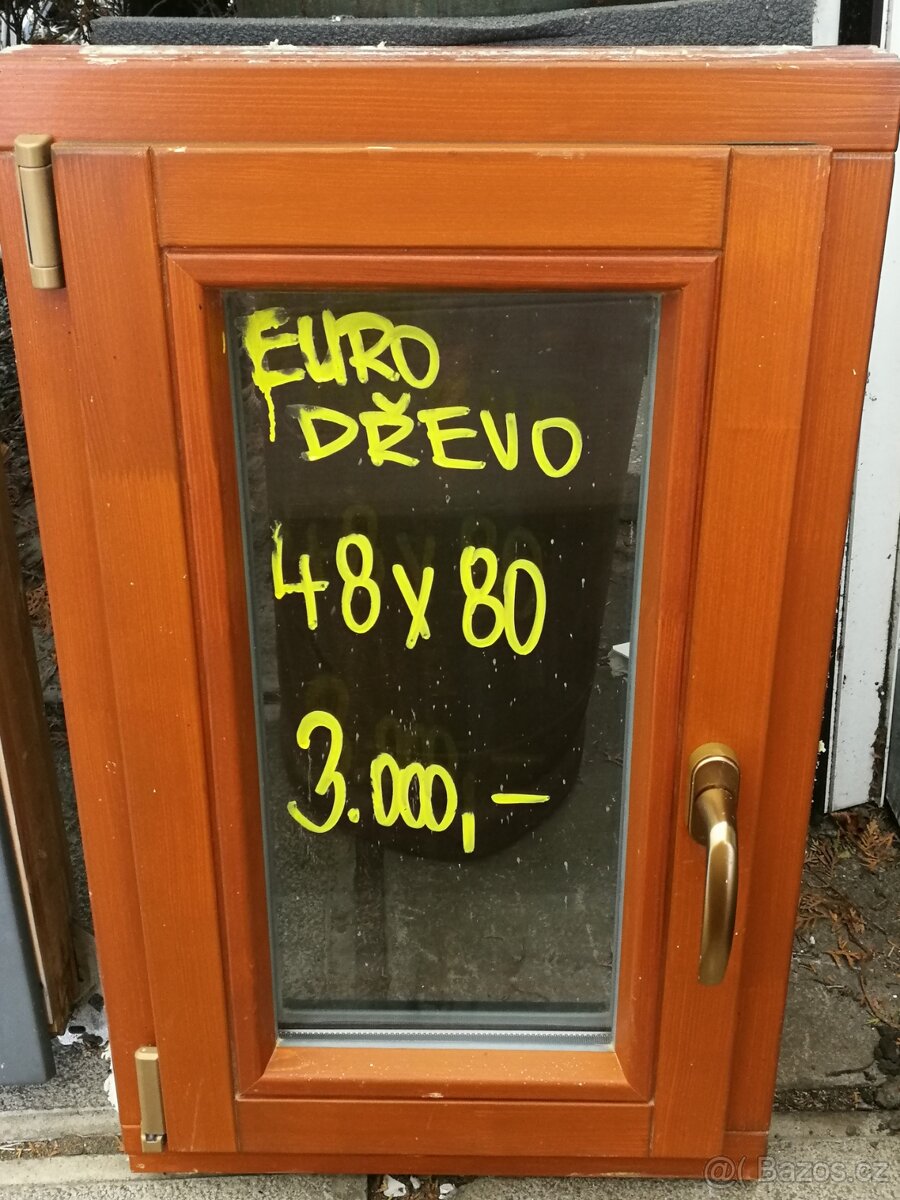 EURO
DŘEVO
48x80
3.000,-
@( Bazos.cz